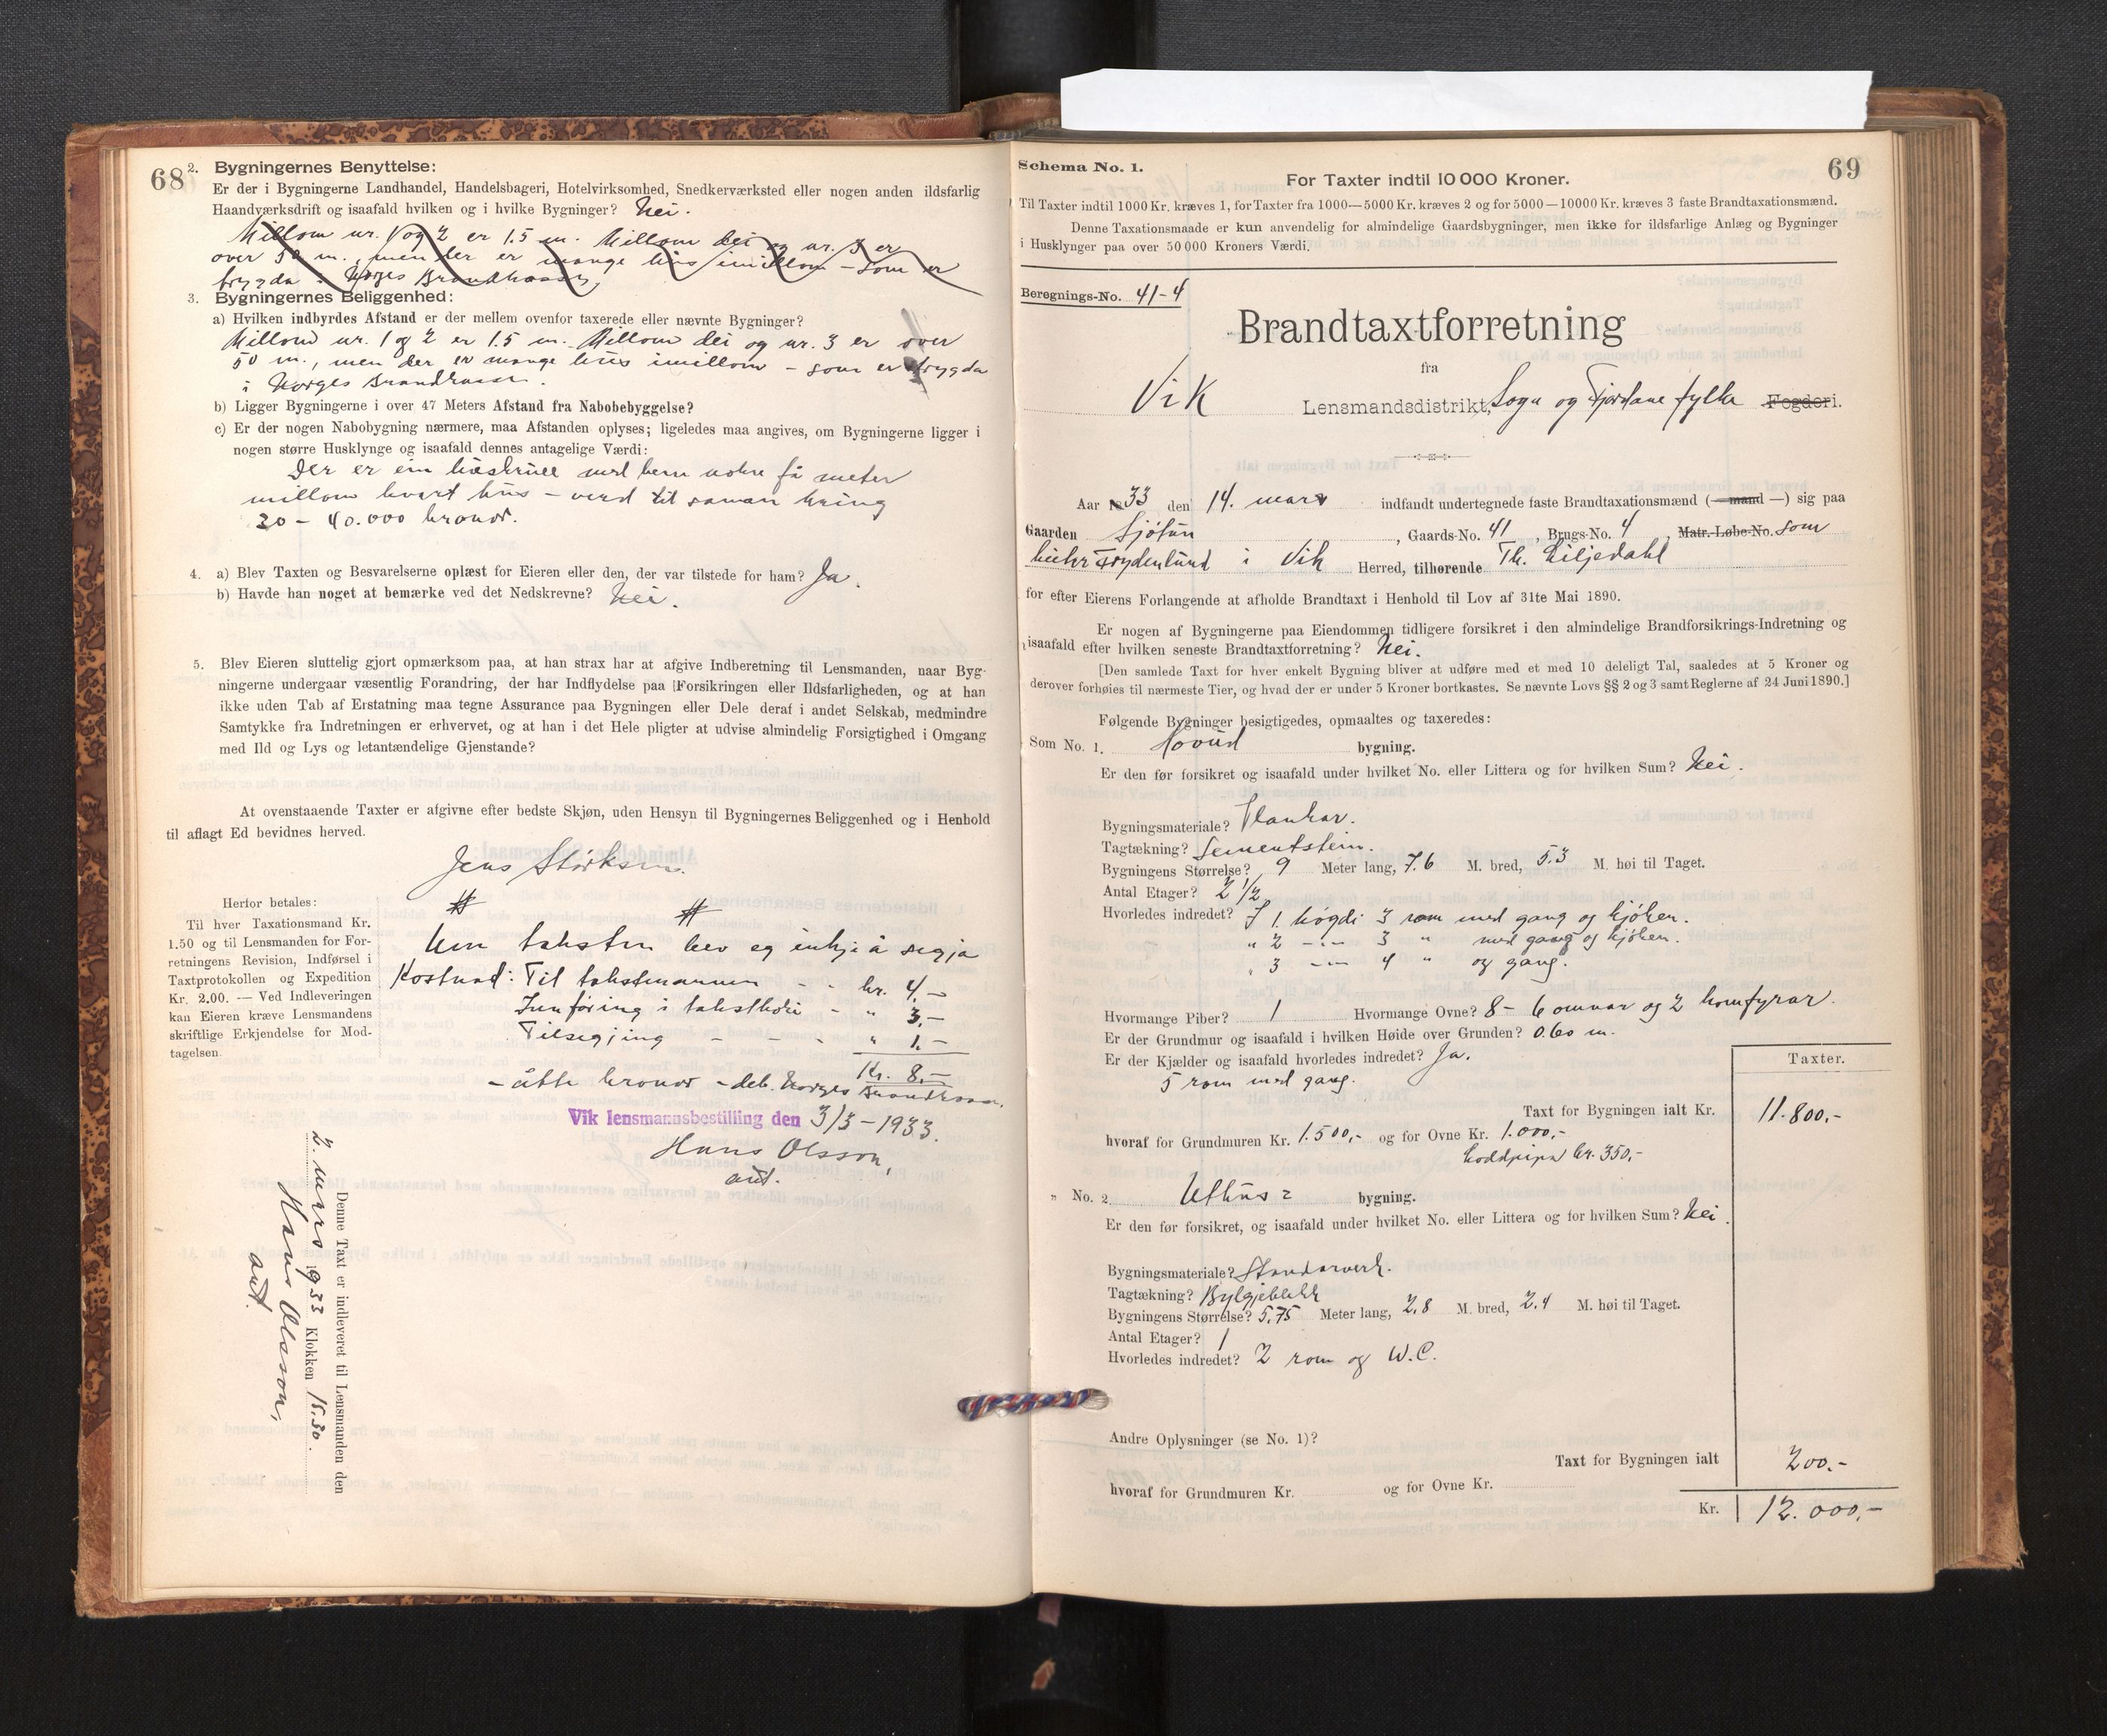 68
2. Bygningernes Benyttelse:
Er der i Bygningerne Landhandel, Handelsbageri, Hotelvirksomhed, Snedkerværksted eller nogen anden ildsfarlig
Haandværksdrift og isaafald hvilken og i hvilke Bygninger? Nei.
Millom nr. 1 og 2 er 1.5 m. Millom dei og nr. 3 er
over 50 m., men der er mange hus imillom – som er
trygda i Norges Brandkasse,
3. Bygningernes Beliggenhed:
a) Hvilken indbyrdes Afstand er der mellem ovenfor taxerede eller nævnte Bygninger?
Millom nr. 1 og 2 er 1.5 m. Millom dei og nr. 3 er over
50 m., men der er mange hus imillom – som er trygda
i Norges Brandkasse.
b) Ligger Bygningerne i over 47 Meters Afstand fra Nabobebyggelse?
c) Er der nogen Nabobygning nærmere, maa Afstanden oplyses; ligeledes maa angives, om Bygningerne ligger i
nogen større Husklynge og isaafald dennes antagelige Værdi:
Der er ein med berre nokre få meter
millom hvart hus – verd til saman kring
30 – 40.000 kronor.
4. a) Blev Taxten og Besvarelserne oplæst for Eieren eller den, der var tilstede for ham? Ja.
b) Havde han noget at bemærke ved det Nedskrevne? Nei.
5. Blev Eieren sluttelig gjort opmærksom paa, at han strax har at afgive Indberetning til Lensmanden, naar Byg-
ningerne undergaar væsentlig Forandring, der har Indflydelse paa Forsikringen eller Ildsfarligheden, og at han
ikke uden Tab af Erstatning maa tegne Assurance paa Bygningen eller Dele deraf i andet Selskab, medmindre
Samtykke fra Indretningen er erhvervet, og at han i det Hele pligter at udvise almindelig Forsigtighed i Omgang
med Ild og Lys og letantændelige Gjenstande?
At ovenstaaende Taxter er afgivne efter bedste Skjøn, uden Hensyn til Bygningernes Beliggenhed og i Henhold
til aflagt Ed bevidnes herved.
Jens Størksen.
Herfor betales:
Til hver Taxationsmand Kr.
1.50 og til Lensmanden for For-
retningens Revision, Indførsel i
Taxtprotokollen og Expedition
Kr. 2.00. — Ved Indleveringen
kan Eieren kræve Lensmandens
skriftlige Erkjendelse for Mod-
tagelsen.
Um taksten hev eg inkje å segja
Kostnad: Til takstmannen - - kr. 4,–
Innføring i takstboki - " 3,–
Tilsegjing - - - " 1.–
Kr. 8,–
– åtte kronor – deb. Norges Brandkasse.
Vik lensmannsbestilling den 3/3 – 1933.
Hans Olsson,
ast.
Denne Taxt er indleveret til Lensmanden den
2. mars 1933 Klokken 15.30.
Hans Olsson,
ast.
69
Schema No. 1.
For Taxter indtil 10 000 Kroner.
Til Taxter indtil 1000 Kr. kræves 1, for Taxter fra 1000—5000 Kr. kræves 2 og for 5000—10000 Kr. kræves 3 faste Brandtaxationsmænd.
Denne Taxationsmaade er kun anvendelig for almindelige Gaardsbygninger, men ikke for ildsfarlige Anlæg og Bygninger
i Husklynger paa over 50 000 Kroners Værdi.
Beregnings-No. 41-4
Brandtaxtforretning
fra
Vik Lensmandsdistrikt, Sogn og Fjordane fylke Fogderi.
Aar 33 den 14. mars indfandt undertegnede faste Brandtaxationsmænd (— mand —) sig paa
Gaarden Sjøtun, Gaards-No. 41, Brugs-No. 4, Matr.-Løbe-No. som
Frydenlund i Vik Herred, tilhørende Th. Liljedahl
for efter Eierens Forlangende at afholde Brandtaxt i Henhold til Lov af 31te Mai 1890.
Er nogen af Bygningerne paa Eiendommen tidligere forsikret i den almindelige Brandforsikrings-Indretning og
isaafald efter hvilken seneste Brandtaxtforretning? Nei.
[Den samlede Taxt for hver enkelt Bygning bliver at udføre med et med 10 deleligt Tal, saaledes at 5 Kroner og
derover forhøies til nærmeste Tier, og hvad der er under 5 Kroner bortkastes. Se nævnte Lovs §§ 2 og 3 samt Reglerne af 24 Juni 1890.]
Følgende Bygninger besigtigedes, opmaaltes og taxeredes:
Som No. 1. Hovud bygning.
Er den før forsikret og isaafald under hvilket No. eller Littera og for hvilken Sum? Nei.
Bygningsmateriale? Plankar.
Tagtækning? Sementstein.
Bygningens Størrelse? 9 Meter lang, 7.6 M. bred, 5.3 M. høi til Taget.
Antal Etager? 2 1/2
Hvorledes indredet? I 1. høgdi 3 rom med gang og kjøken.
" 2 –"– 3 " med gang og kjøken.
" 3 –"– 4 " og gang.
Hvormange Piber? 1 Hvormange Ovne? 8 – 6 omnar og 2 komfyrar.
Er der Grundmur og isaafald i hvilken Høide over Grunden? 0.60 m.
Er der Kjælder og isaafald hvorledes indredet? Ja.
5 rom med gang.
Taxter.
Taxt for Bygningen ialt Kr. 11.800,–
hvoraf for Grundmuren Kr. 1.500,– og for Ovne Kr. 1.000,–
kr. 350,–
" No. 2. Uthus bygning.
Er den før forsikret, og isaafald under hvilket No. eller Littera og for hvilken Sum? Nei.
Bygningsmateriale? Standarverk.
Tagtækning? Bylgjeblekk
Bygningens Størrelse? 5,75 Meter lang, 2.8 M. bred, 2.4 M. høi til Taget.
Antal Etager? 1
Hvorledes indredet? 2 rom og W.C.
Andre Oplysninger (se No. 1)?
Taxt for Bygningen ialt 200.–
hvoraf for Grundmuren Kr. og for Ovne Kr.
Kr. 12.000,–